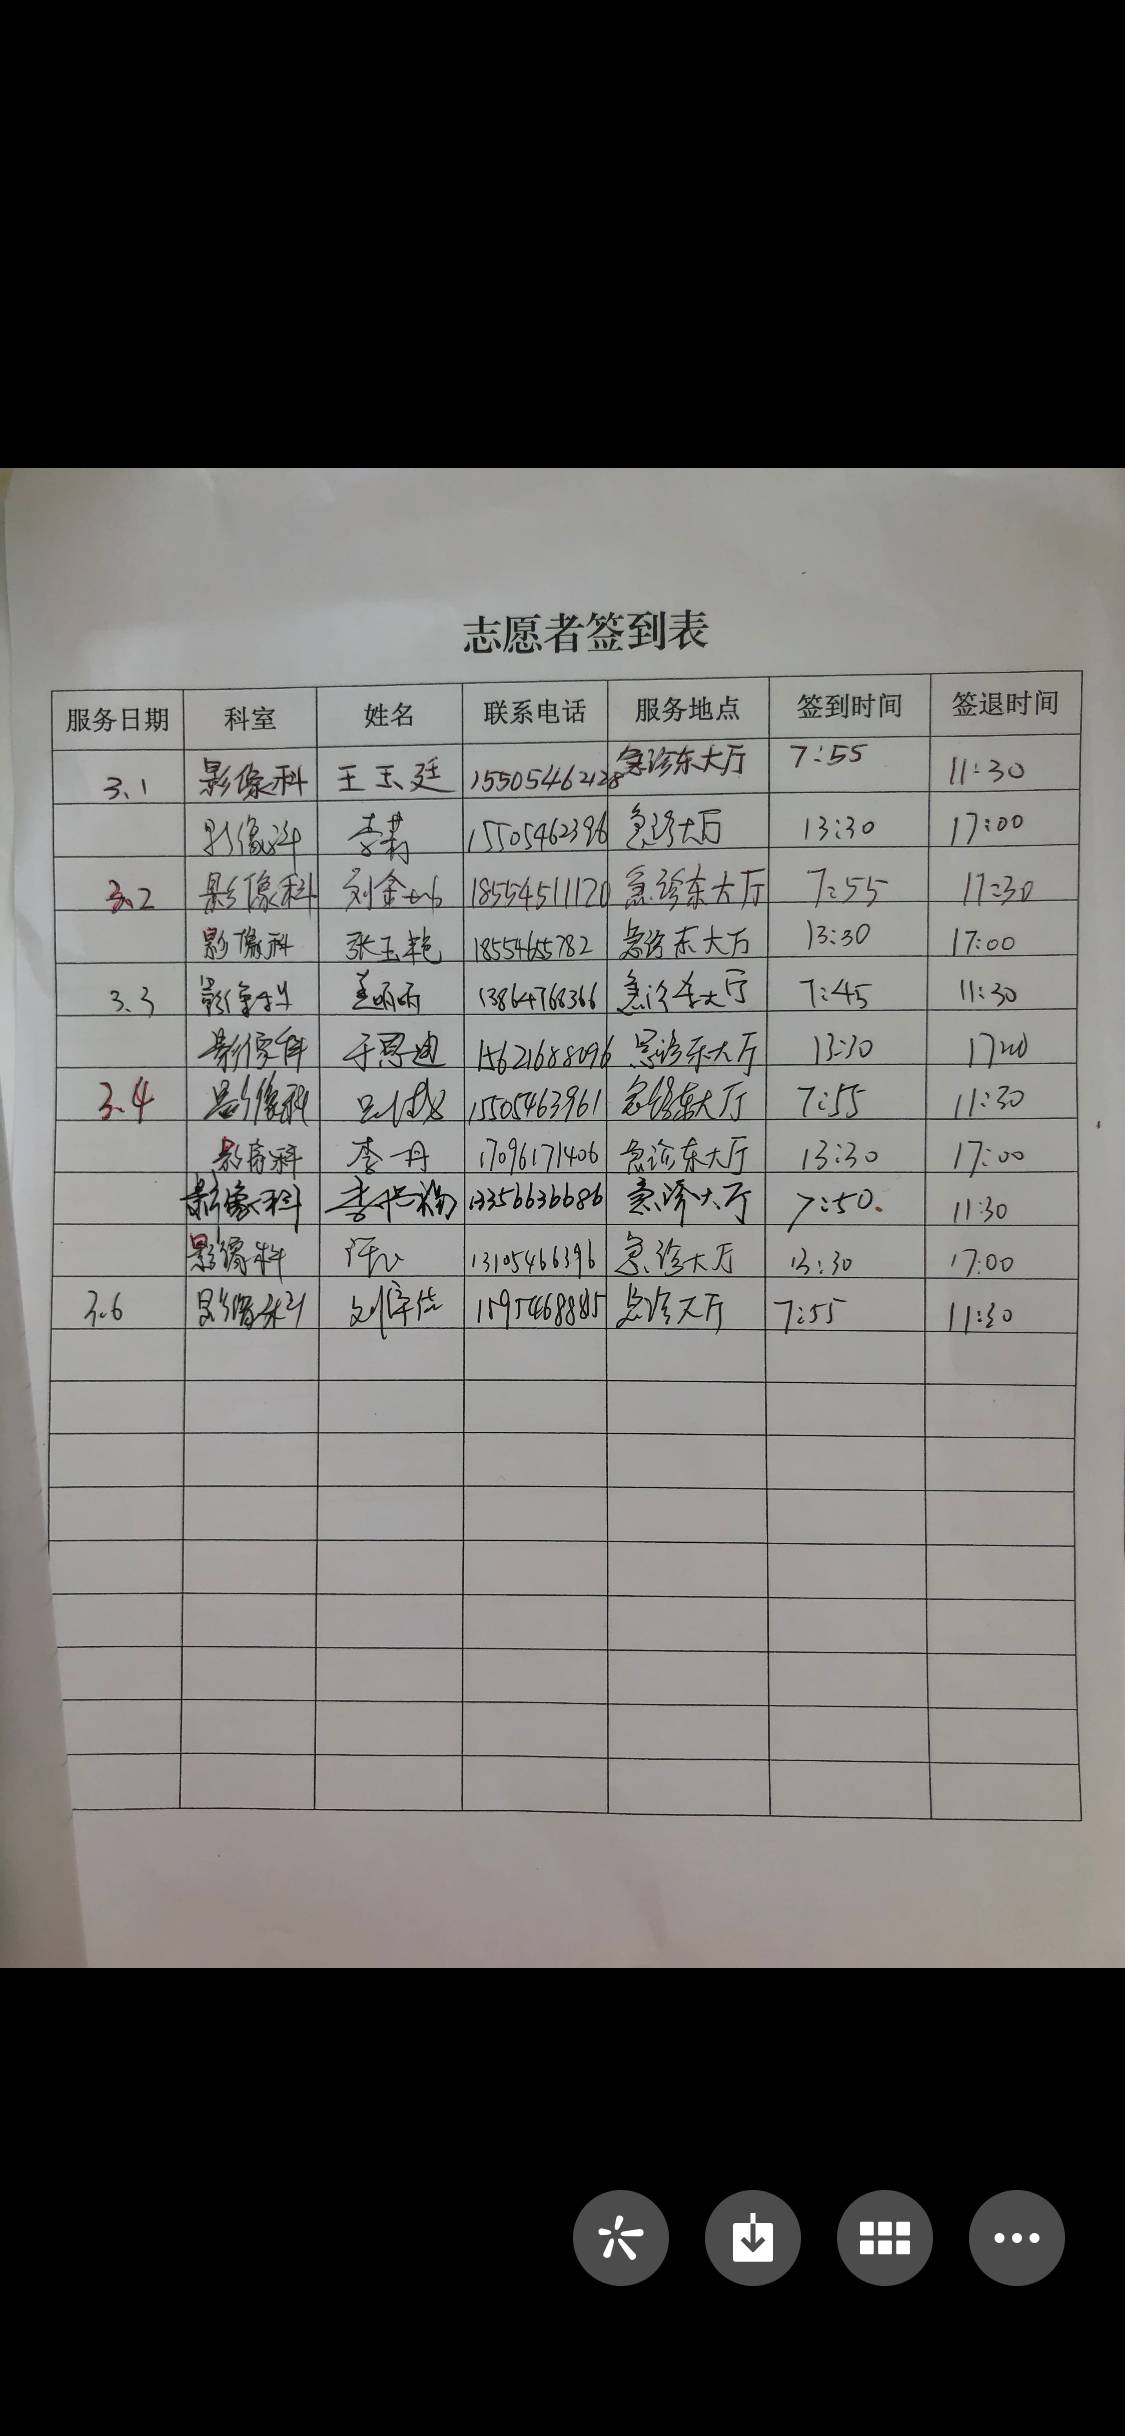 志愿者签到表
服务日期 科室 姓名 联系电话 服务地点 签到时间 签退时间
3.1 影像科 王玉廷 15505462128 急诊东大厅 7:55 11:30
影像科 李莉 15505462396 急诊大厅 13:30 17:00
3.2 影像科 刘金 18554511120 急诊东大厅 7:55 11:30
影像科 张玉艳 1855465782 急诊东大厅 13:30 17:00
3.3 影像科 13864768366 急诊东大厅 7:45 11:30
影像科 于恩迪 15621688096 急诊东大厅 13:30 1700
3.4 影像科 15505463961 急诊东大厅 7:55 11:30
影像科 李丹 17096171406 急诊东大厅 13:30 17:00
影像科 李 13356636686 急诊大厅 7:50. 11:30
影像科 13105466396 急诊大厅 13:30 17:00
3.6 影像科 刘 急诊大厅 7:55 11:30